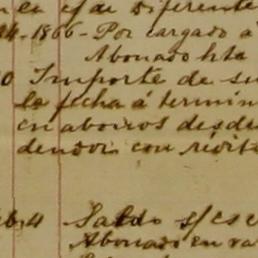 en c/ de diferente
24-1866-Por cargado á
Abonado hta
0 Importe de su
la fecha á termin
en abonos desde
dendoi con
4 Saldo s/ es
Abonado en va